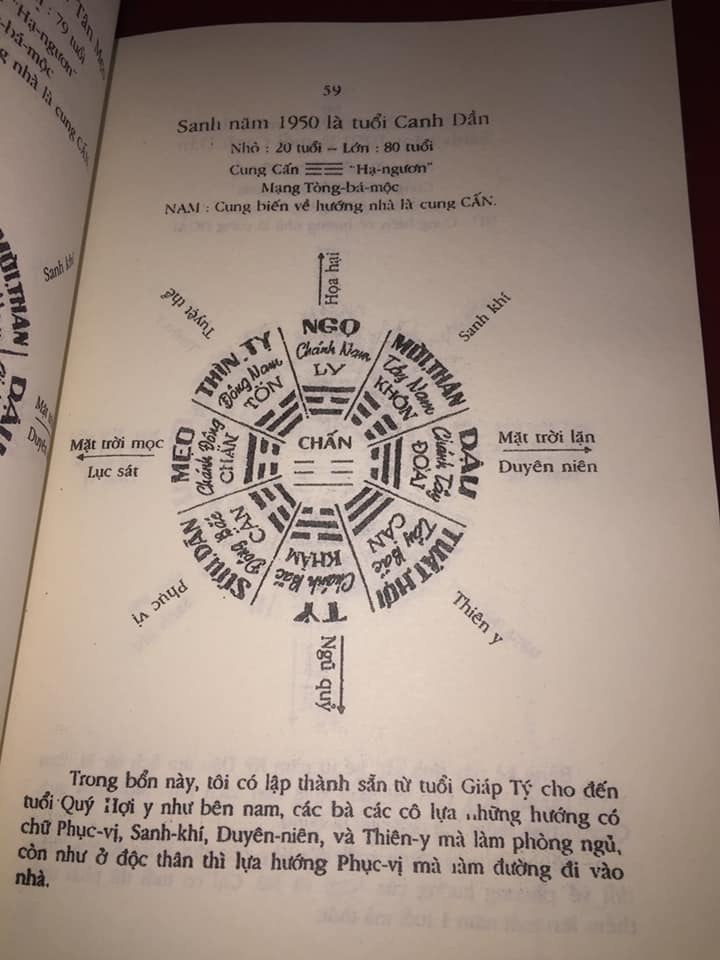 Tân Mẹo
: 79 tuổi
"Hạ-ngươn"
-bá-mộc
nhà là cung CẤN
Sanh khí
MÙI.THÂN
DẬU
Mặt trời
Duyên
59
Sanh năm 1950 là tuổi Canh Dần
Nhỏ : 20 tuổi – Lớn : 80 tuổi
Cung Cấn "Hạ-ngươn"
Mạng Tòng-bá-mộc
NAM : Cung biến về hướng nhà là cung CẤN.
Họa hại
Tuyệt thể
Sanh khí
NGỌ
Chánh Nam
LY
THÌN.TỴ
Đông Nam
TỐN
MÙI.THÂN
Tây Nam
KHÔN
Mặt trời mọc
Lục sát
MẸO
Chánh Đông
CHẤN
CHẤN
DẬU
Chánh Tây
ĐOÀI
Mặt trời lặn
Duyên niên
SỬU.DẦN
Đông Bắc
CẤN
KHẢM
Chánh Bắc
TÝ
TUẤT.HỢI
Tây Bắc
CÀN
Phục vị
Ngũ quỷ
Thiên y
Trong bổn này, tôi có lập thành sẵn từ tuổi Giáp Tý cho đến
tuổi Quý Hợi y như bên nam, các bà các cô lựa những hướng có
chữ Phục-vị, Sanh-khí, Duyên-niên, và Thiên-y mà làm phòng ngủ,
còn như ở độc thân thì lựa hướng Phục-vị mà làm đường đi vào
nhà.